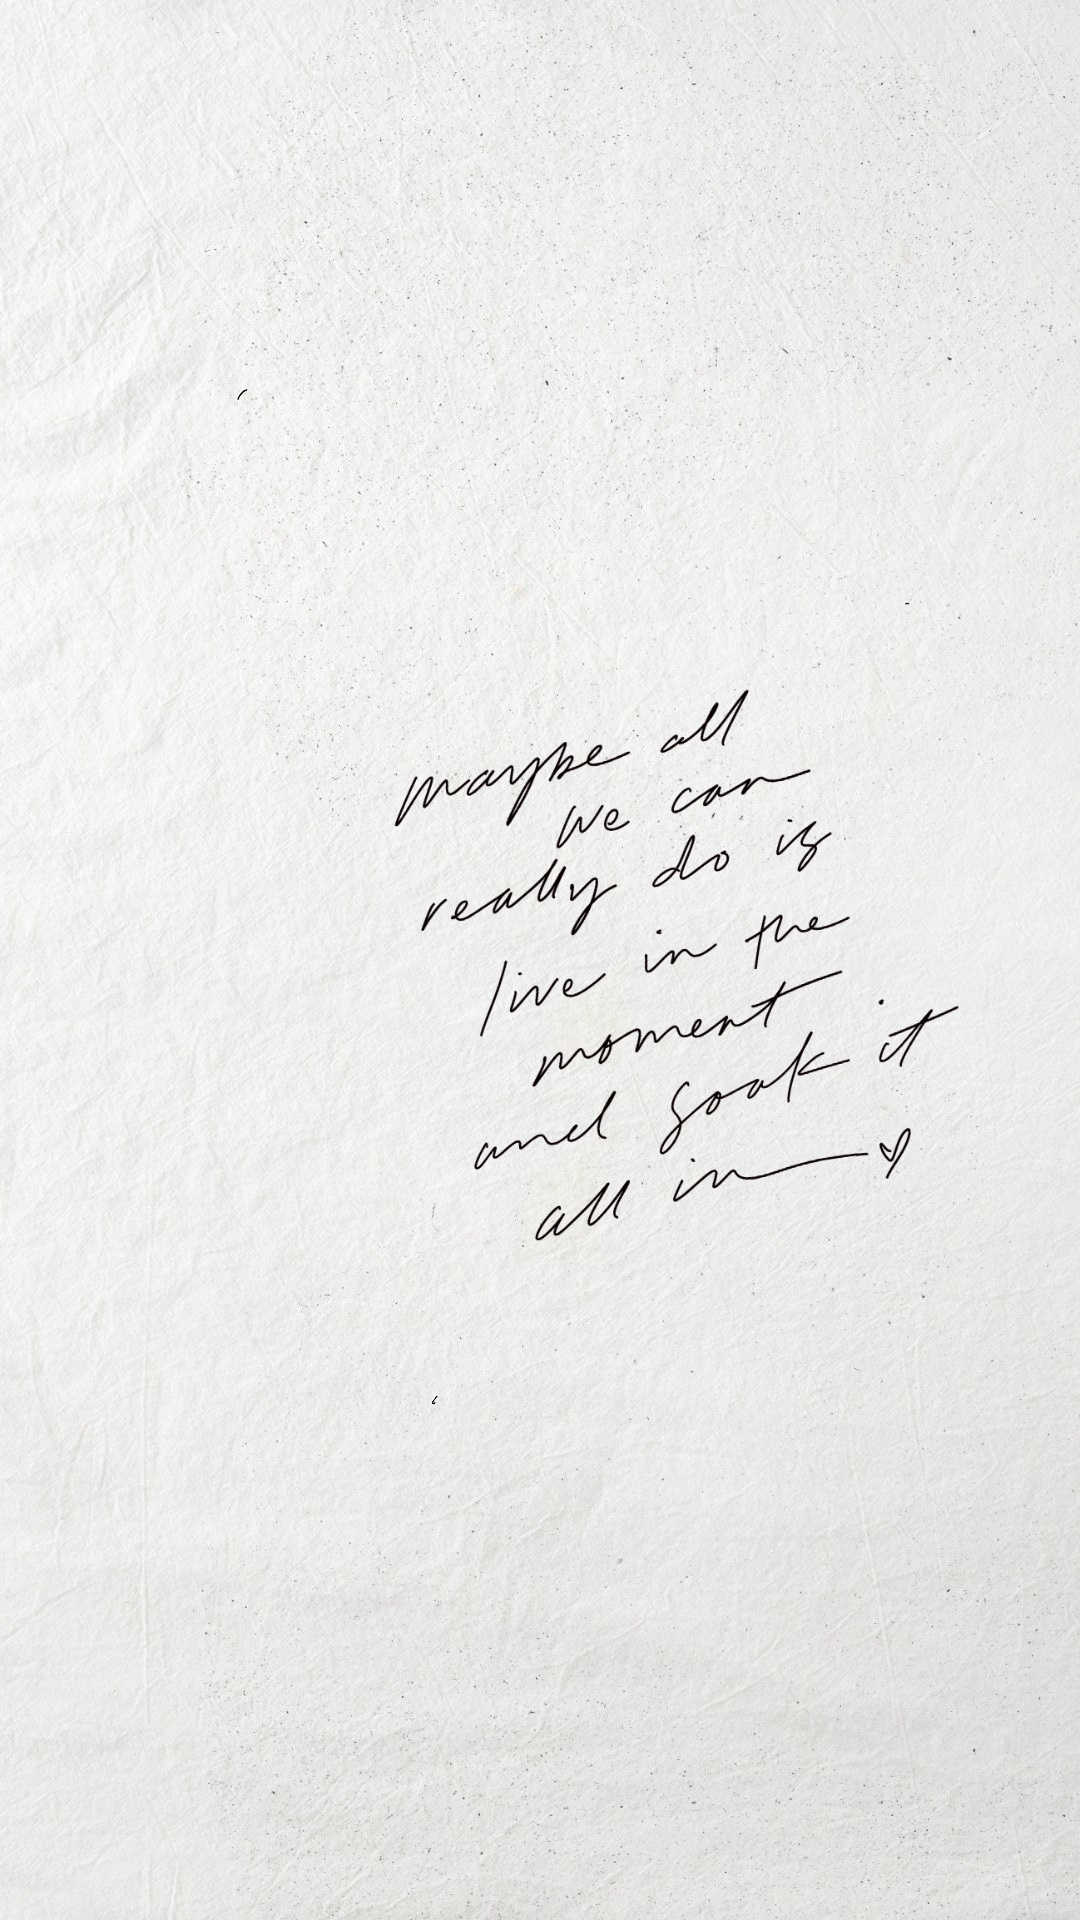 maybe all
we can
really do is
live in the
moment
and soak it
all in